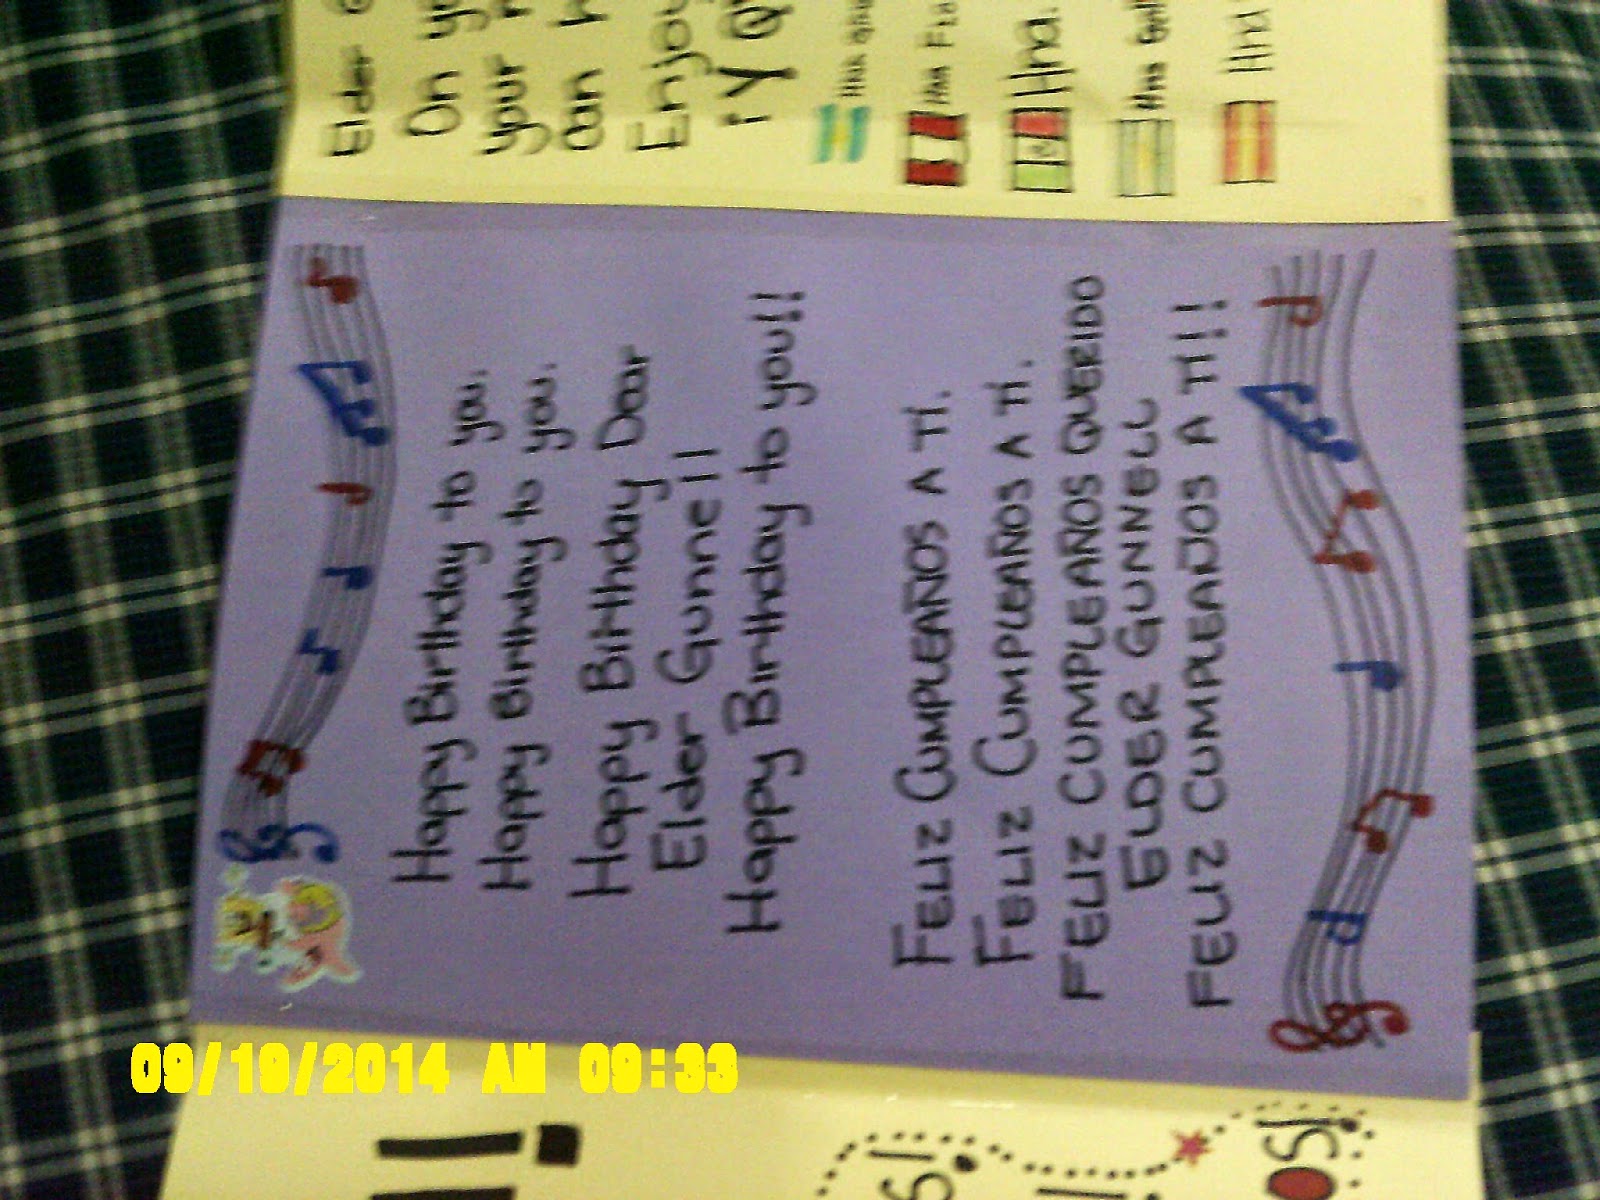 Happy Birthday to you.
Happy Birthday to you.
Happy Birthday Dear
Elder Gunnell
Happy Birthday to you!!
FELIZ CUMPLEAÑOS A TÍ.
FELIZ CUMPLEAÑOS A TÍ.
FELIZ CUMPLEAÑOS QUERIDO
ELDER GUNNELL
FELIZ CUMPLEAÑOS A TÍ!!
Elder
On
your
can
Enjoy
Hna
Hna.
Hna
Hna
09/19/2014 AM 09:33